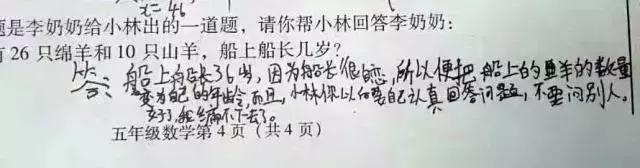 x=46
题是李奶奶给小林出的一道题，请你帮小林回答李奶奶：
有 26 只绵羊和 10 只山羊，船上船长几岁？
答：船上船长36岁，因为船长很恋，所以便把船上的羊的数量
变为自己的年龄，而且，小林你以后要自己认真回答问题，不要问别人。
好了，我编不下去了。
五年级数学第 4 页（共 4 页）